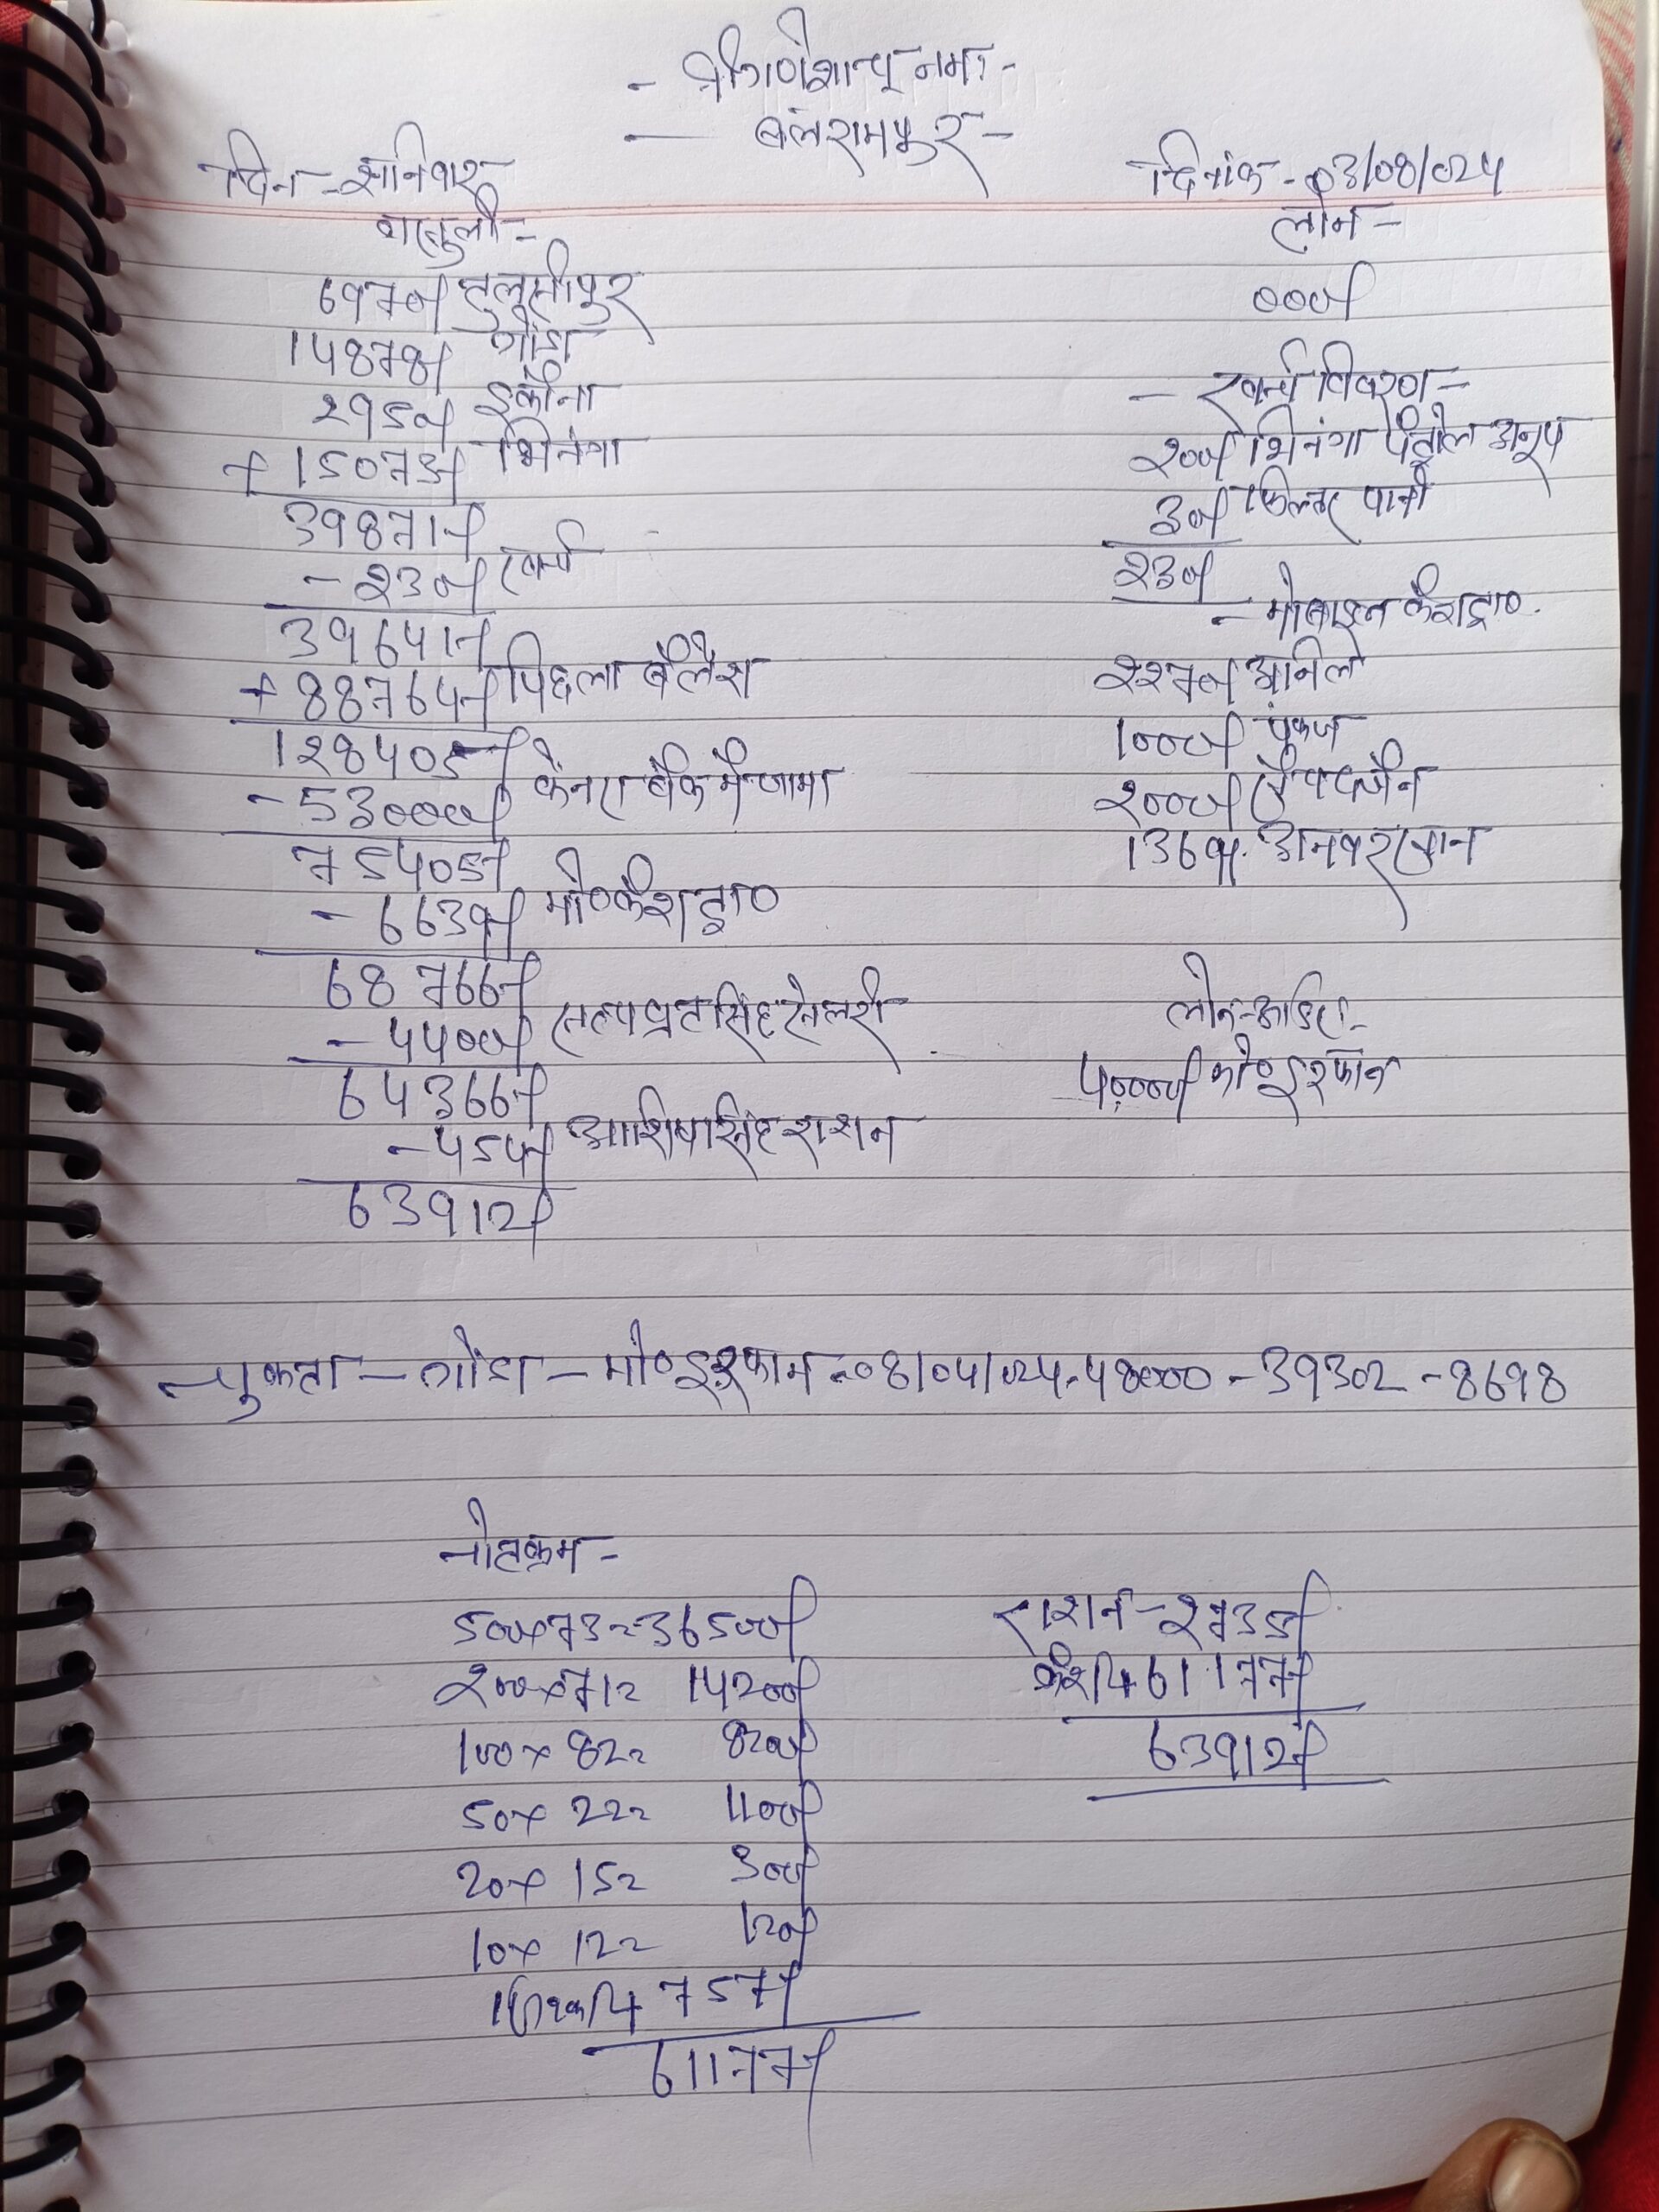 - श्री गणेशाय नमः -
- बलरामपुर -
दिन - शनिवार
दिनांक - 03/08/024
वासुली -
6970/ तुलसीपुर
14878/ गोंडा
2950/ इकौना
+ 15073/ भिनगा
39871/
- 230/ खर्च
39641/
+ 88764/ पिछला बैलेंश
128405/
- 53000/ केनरा बैंक में जामा
75405/
- 6639/ मो० कैश द्वा०
68766/
- 4400/ सत्यव्रत सिंह सेलरी
64366/
- 454/ आशिष सिंह राशन
63912/
लोन -
000/
- खर्च विवरण -
200/ भिनगा पेट्रोल अनूप
30/ फिल्टर पानी
230/
- मोबाइल कैश द्वा०
2270/ अनिल
1000/ पंकज
2000/
1369/ अनवर खान
लोन आडिट -
40000/ मो० इरफान
चुकता - गोंडा - मो० इरफान - 08/04/024 - 48000 - 39302 - 8698
नोटक्रम -
500x73=36500/
200x71= 14200/
100x 82= 8200/
50x 22= 1100/
20x 15= 300/
10x 12= 120/
757/
61177/
राशन - 2735/
कैश + 61177/
63912/